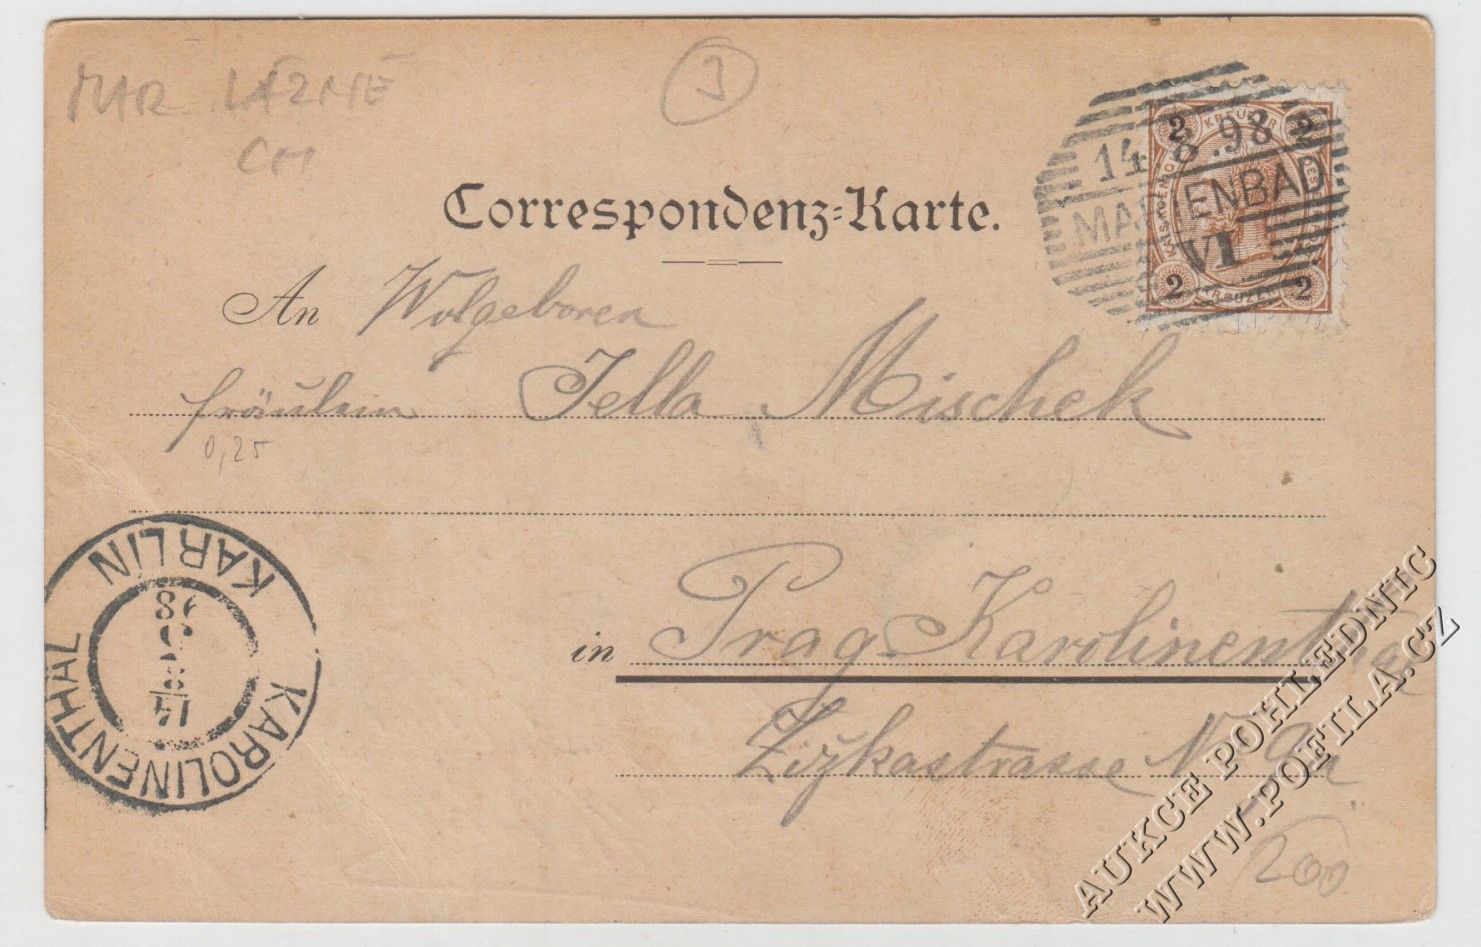 MAR LÁZNĚ
CM
3
KREUZER
2 2
14. 8. 98
MARIENBAD
VI
2 2
KREUZER
Correspondenz-Karte.
An Wolgeboren
Fräulein Jella Mischek
0,25
KARLIN
KAROLINENTHAL
14
8
98
in Prag-Karolinenthal
Žižkastrasse N.
200
AUKCE POHLEDNIC
WWW.POFILA.CZ